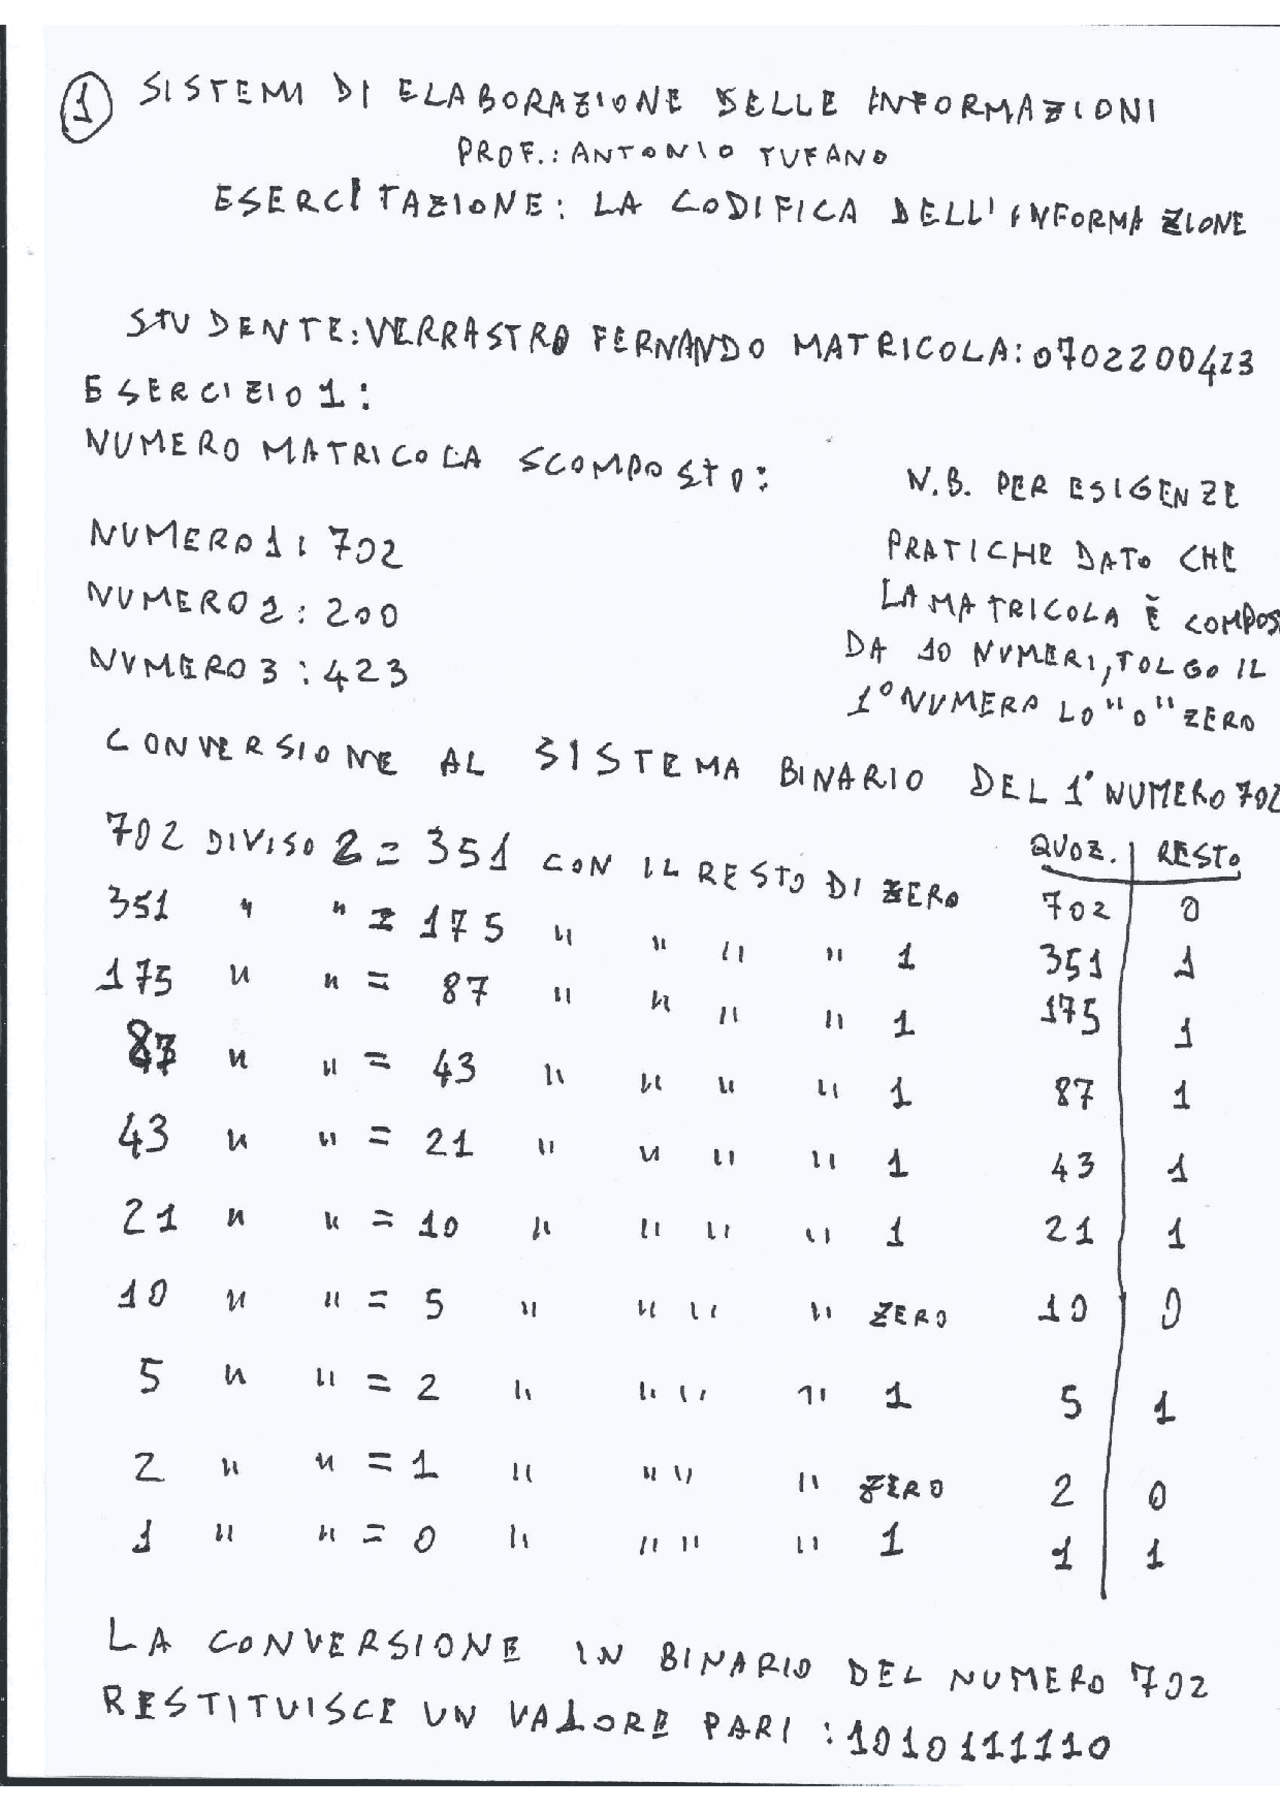 1 SISTEMI DI ELABORAZIONE DELLE INFORMAZIONI
PROF.: ANTONIO TUFANO
ESERCITAZIONE: LA CODIFICA DELL'INFORMAZIONE
STUDENTE: VERRASTRO FERNANDO MATRICOLA: 0702200423
ESERCIZIO 1:
NUMERO MATRICOLA SCOMPOSTO:
NUMERO 1: 702
NUMERO 2: 200
NUMERO 3: 423
N.B. PER ESIGENZE
PRATICHE DATO CHE
LA MATRICOLA È COMPOS
DA 10 NUMERI, TOLGO IL
1° NUMERO LO "0" ZERO
CONVERSIONE AL SISTEMA BINARIO DEL 1° NUMERO 702
702 DIVISO 2 = 351 CON IL RESTO DI ZERO
351 " " = 175 " " " " 1
175 " " = 87 " " " " 1
87 " " = 43 " " " " 1
43 " " = 21 " " " " 1
21 " " = 10 " " " " 1
10 " " = 5 " " " " ZERO
5 " " = 2 " " " " 1
2 " " = 1 " " " " ZERO
1 " " = 0 " " " " 1
QUOZ. | RESTO
702 | 0
351 | 1
175 | 1
87 | 1
43 | 1
21 | 1
10 | 0
5 | 1
2 | 0
1 | 1
LA CONVERSIONE IN BINARIO DEL NUMERO 702
RESTITUISCE UN VALORE PARI : 1010111110